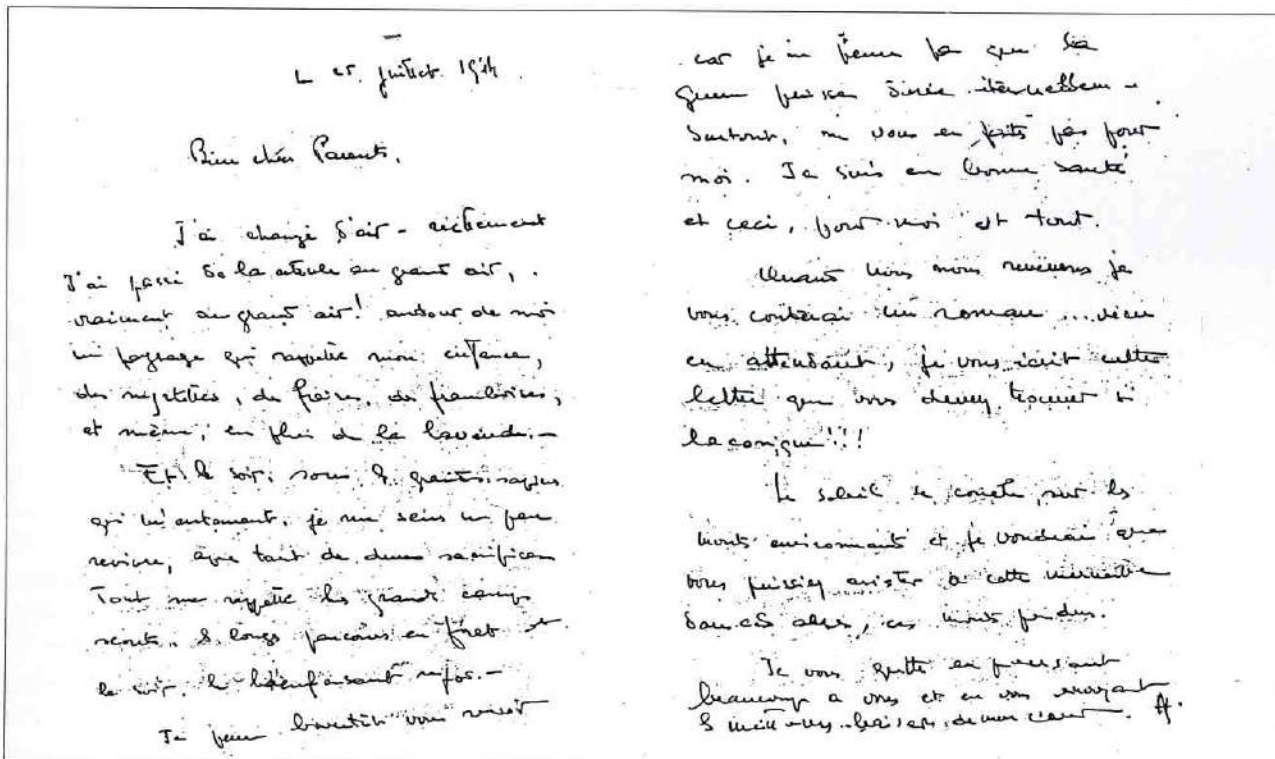 Le 25 juillet 1944.
Bien chers Parents,
J'ai changé d'air –
J'ai passé de la au grand air,
vraiment au grand air! autour de moi
un paysage qui rappelle mon enfance,
des myrtilles, des fraises, des framboises,
et même, en plus de la lavande. –
Et le soir, sous les grands sapins
qui m'entourent, je me sens un peu
revivre, après tant de durs sacrifices
Tout me rappelle les grands camps
scouts, les longs parcours en forêt et
le soir, le bienfaisant repos. –
Je pense bientôt vous revoir
car je ne pense pas que la
guerre puisse durer éternellement –
Surtout, ne vous en faites pas pour
moi. Je suis en bonne santé
et ceci, pour moi est tout.
Quand nous nous reverrons je
vous conterai un roman ... vécu
en attendant, je vous écrit cette
lettre que vous devez trouver si
laconique!!!
Le soleil se couche, sur les
monts environnants et je voudrais que
vous puissiez assister à cette merveille
dans ces alpes, ces monts perdus.
Je vous quitte en pensant
beaucoup à vous et en vous envoyant
les meilleurs baisers de mon cœur. A.